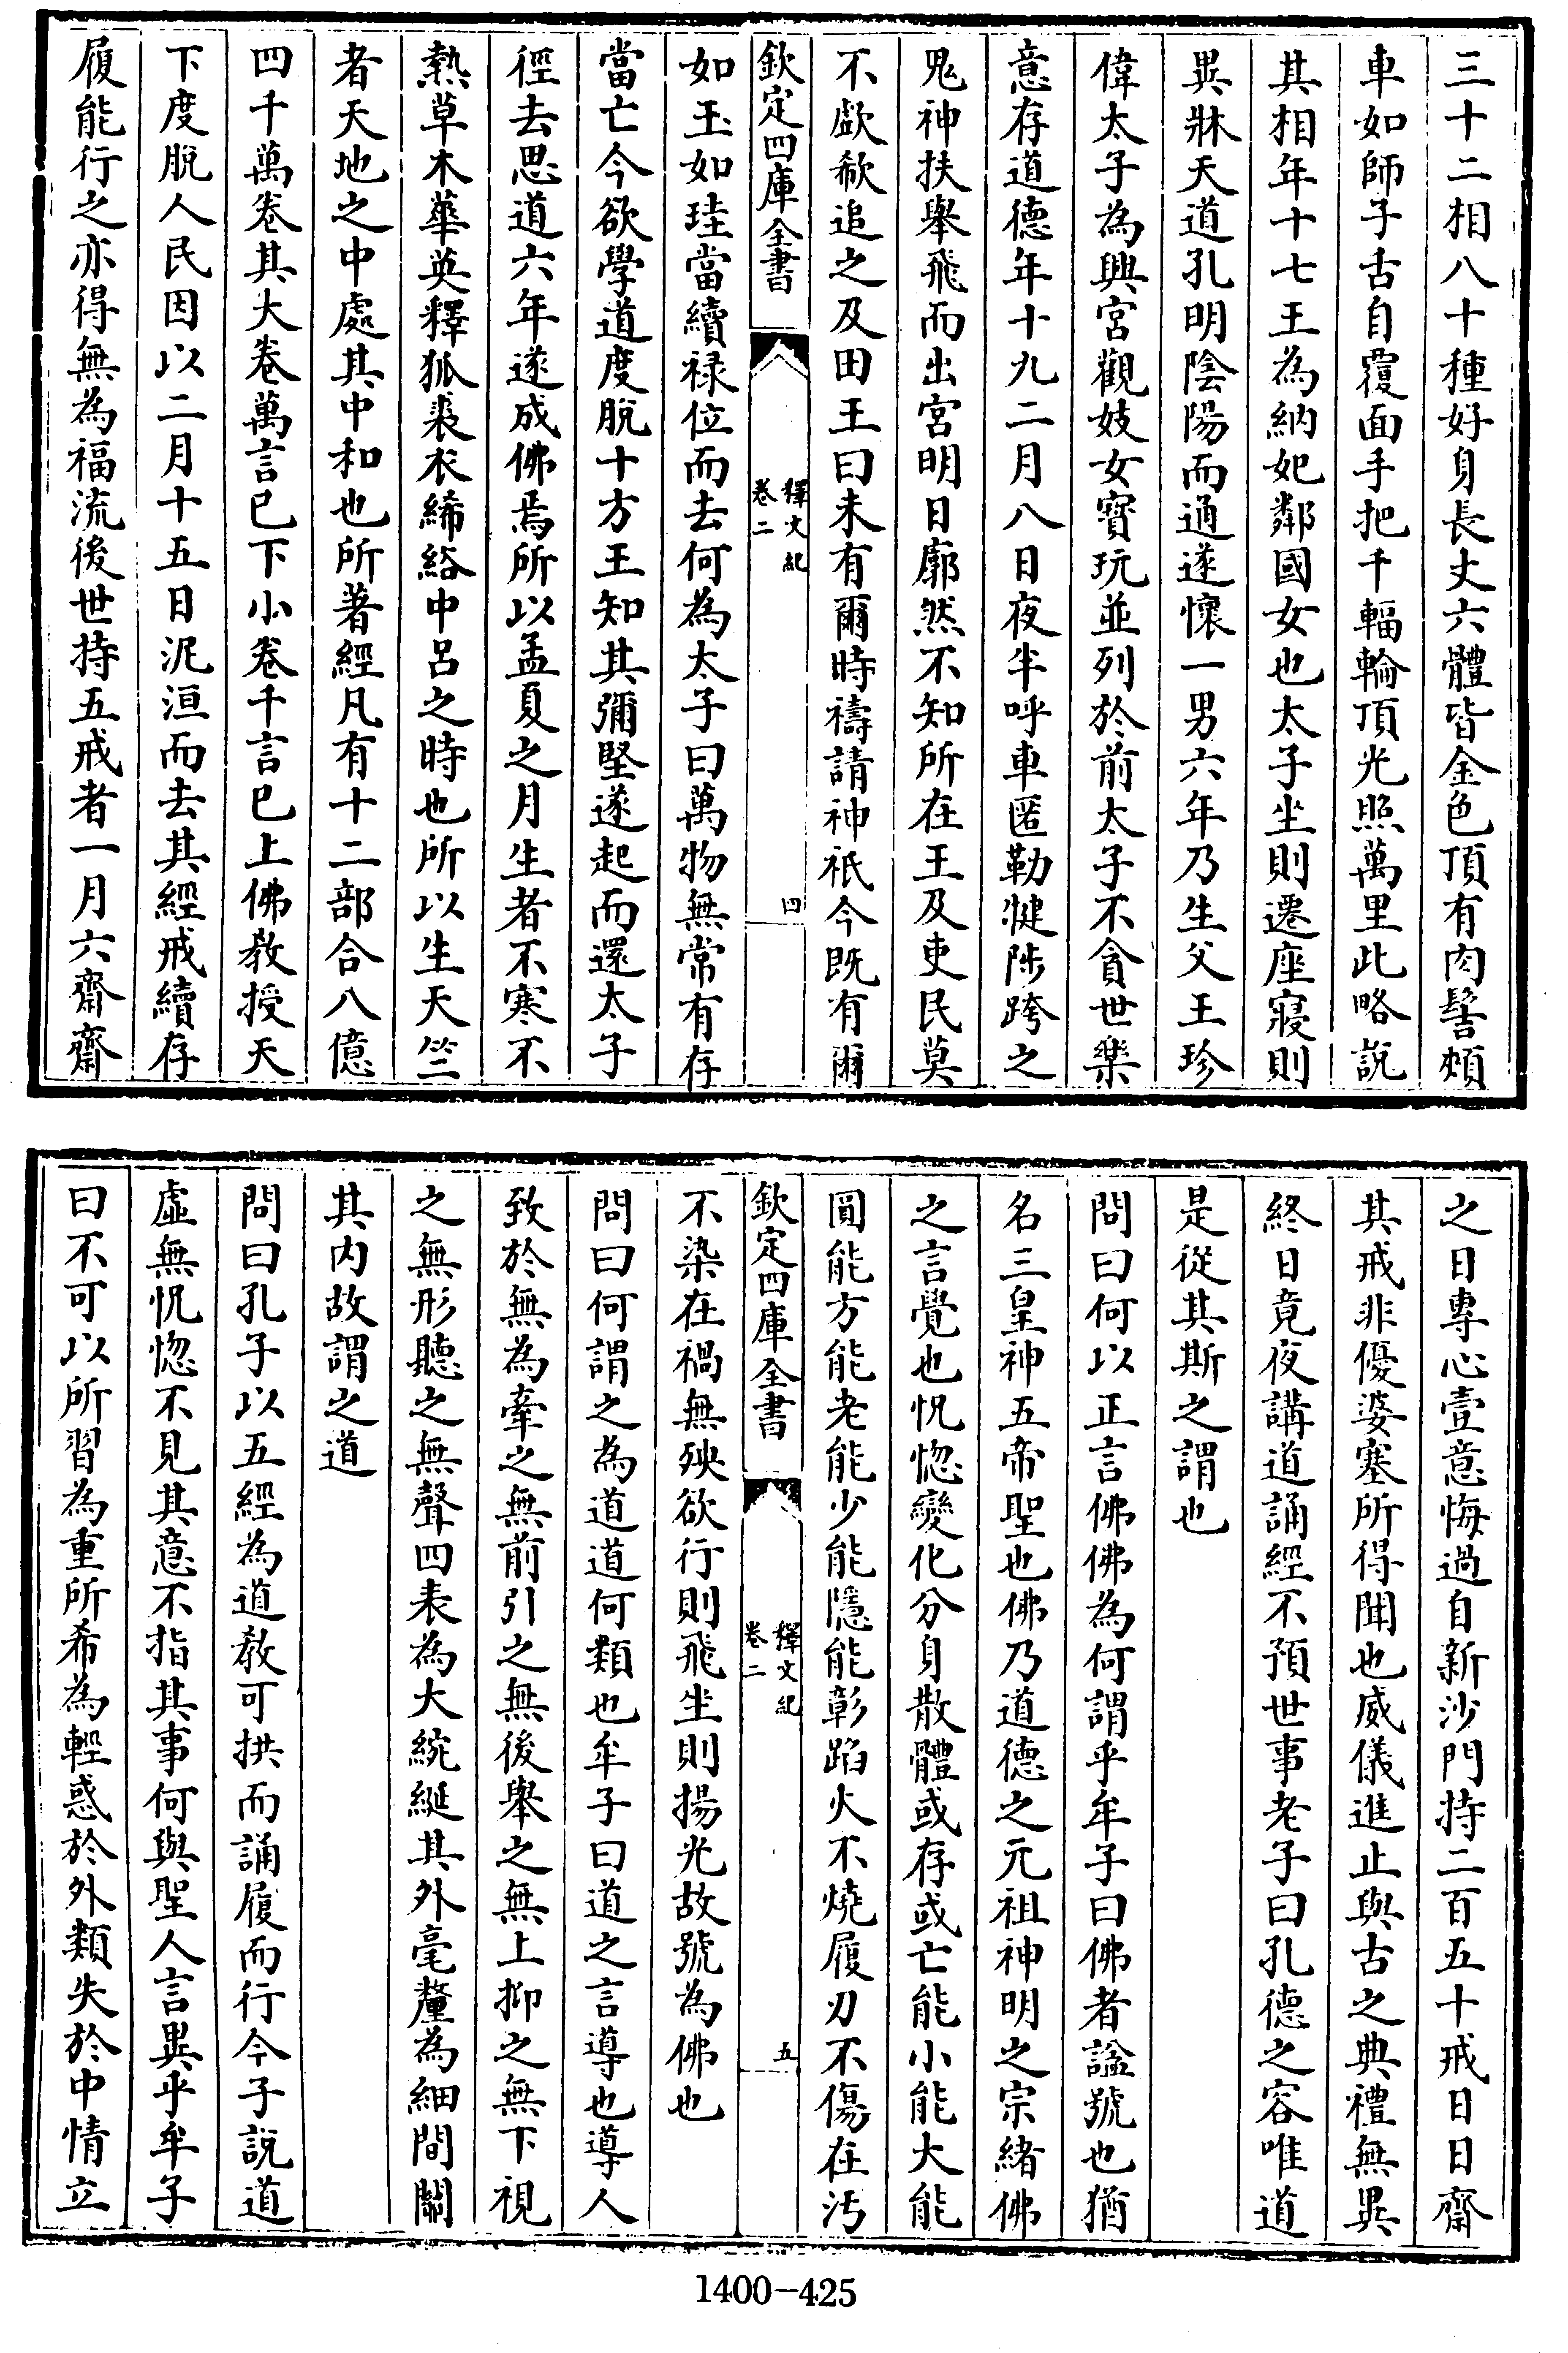 三十二相八十種好身長丈六體皆金色頂有肉髻頰
車如師子舌自覆面手把千輻輪頂光照萬里此略説
其相年十七王為納妃鄰國女也太子坐則遷座寢則
異牀天道孔明陰陽而通遂懷一男六年乃生父王珍
偉太子為興宮觀妓女寳玩並列於前太子不貪世樂
意存道德年十九二月八日夜半呼車匿勒犍陟跨之
鬼神扶舉飛而出宮明日廓然不知所在王及吏民莫
不歔欷追之及田王曰未有爾時禱請神祇今既有爾
欽定四庫全書
釋文紀
卷二
四
如玉如珪當續禄位而去何為太子曰萬物無常有存
當亡今欲學道度脱十方王知其彌堅遂起而還太子
徑去思道六年遂成佛焉所以孟夏之月生者不寒不
熱草木華英釋狐裘衣絺綌中呂之時也所以生天竺
者天地之中處其中和也所著經凡有十二部合八億
四千萬卷其大卷萬言已下小卷千言已上佛教授天
下度脱人民因以二月十五日泥洹而去其經戒續存
履能行之亦得無為福流後世持五戒者一月六齋齋
之日專心壹意悔過自新沙門持二百五十戒日日齋
其戒非優婆塞所得聞也威儀進止與古之典禮無異
終日竟夜講道誦經不預世事老子曰孔德之容唯道
是從其斯之謂也
問曰何以正言佛佛為何謂乎牟子曰佛者諡號也猶
名三皇神五帝聖也佛乃道德之元祖神明之宗緒佛
之言覺也怳惚變化分身散體或存或亡能小能大能
圓能方能老能少能隱能彰蹈火不燒履刃不傷在汚
欽定四庫全書
釋文紀
卷二
五
不染在禍無殃欲行則飛坐則揚光故號為佛也
問曰何謂之為道道何類也牟子曰道之言導也導人
致於無為牽之無前引之無後舉之無上抑之無下視
之無形聽之無聲四表為大綩綖其外毫釐為細間關
其内故謂之道
問曰孔子以五經為道教可拱而誦履而行今子説道
虛無怳惚不見其意不指其事何與聖人言異乎牟子
曰不可以所習為重所希為輕惑於外類失於中情立
1400-425